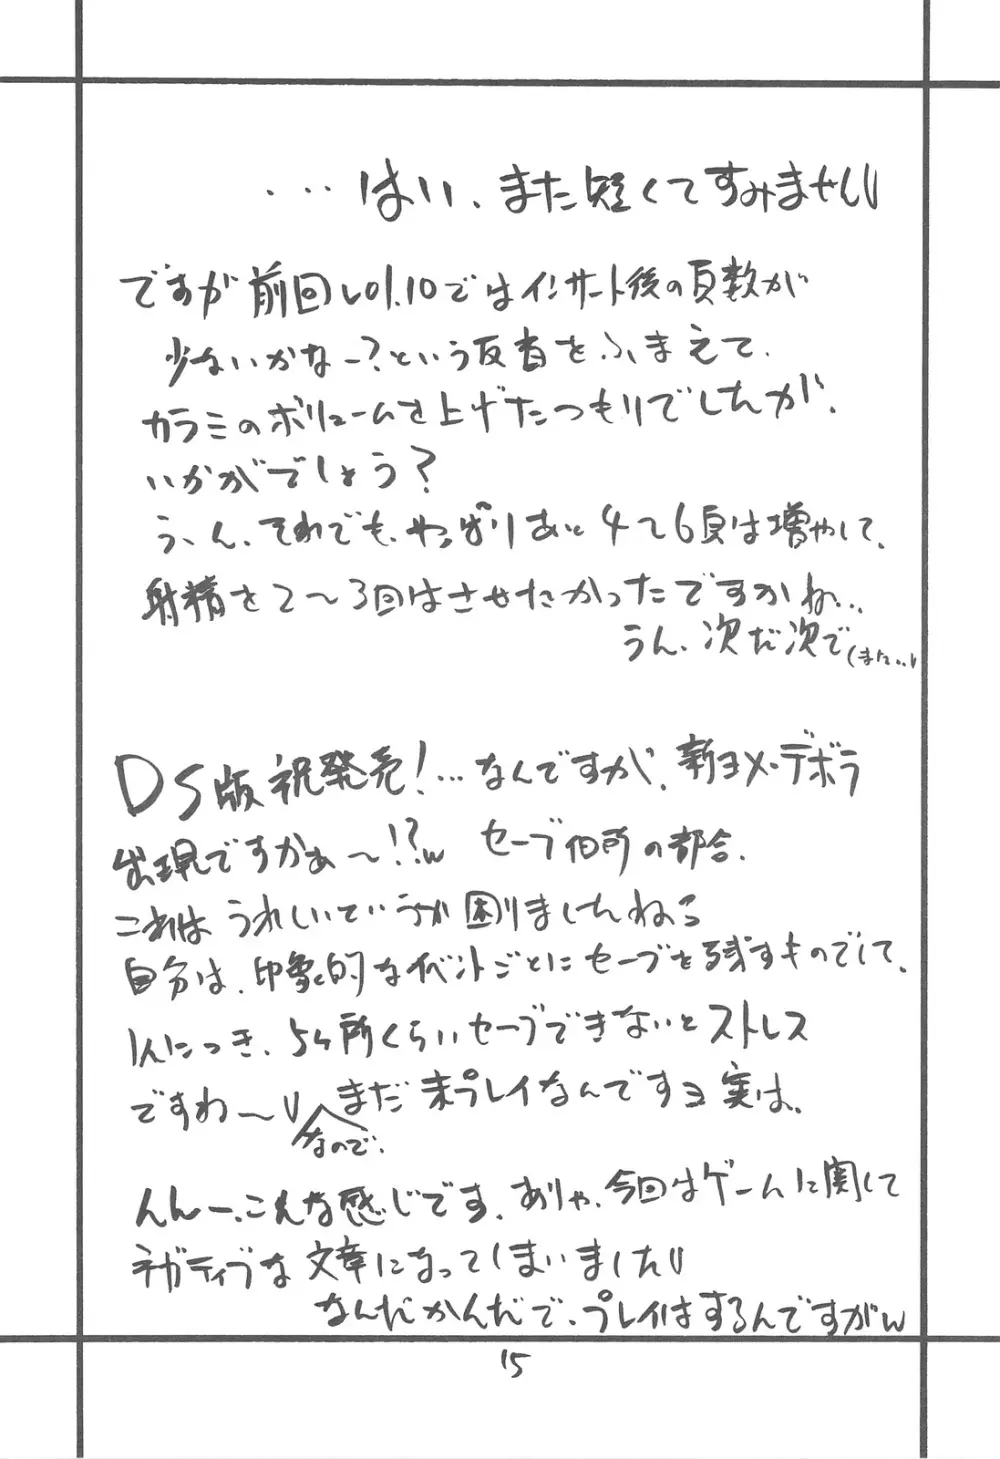 ...はい、また短くてすみません
ですが前回vol.10ではインサート後の頁数が
少ないかなー?という反省をふまえて、
カラミのボリュームを上げたつもりでしたが、
いかがでしょう?
う、ん、それでも、やっぱりあと4〜6頁は増やして、
射精を2〜3回はさせたかったですかね...
うん、次だ次で(また..)
DS版祝発売!...なんですが、新ヨメ・デボラ
出現ですかぁ〜!?w セーブ個所の都合、
これは うれしいていうか困りましたねこ
自分は、印象的なイベントごとにセーブを残すものでして、
1人につき、5ヶ所くらいセーブできないとストレス
ですわ〜 なので、まだ未プレイなんですヨ実は、
んんー、こんな感じです、ありゃ、今回はゲームに関して
ネガティブな文章になってしまいました
なんだかんだで、プレイはするんですがw
15